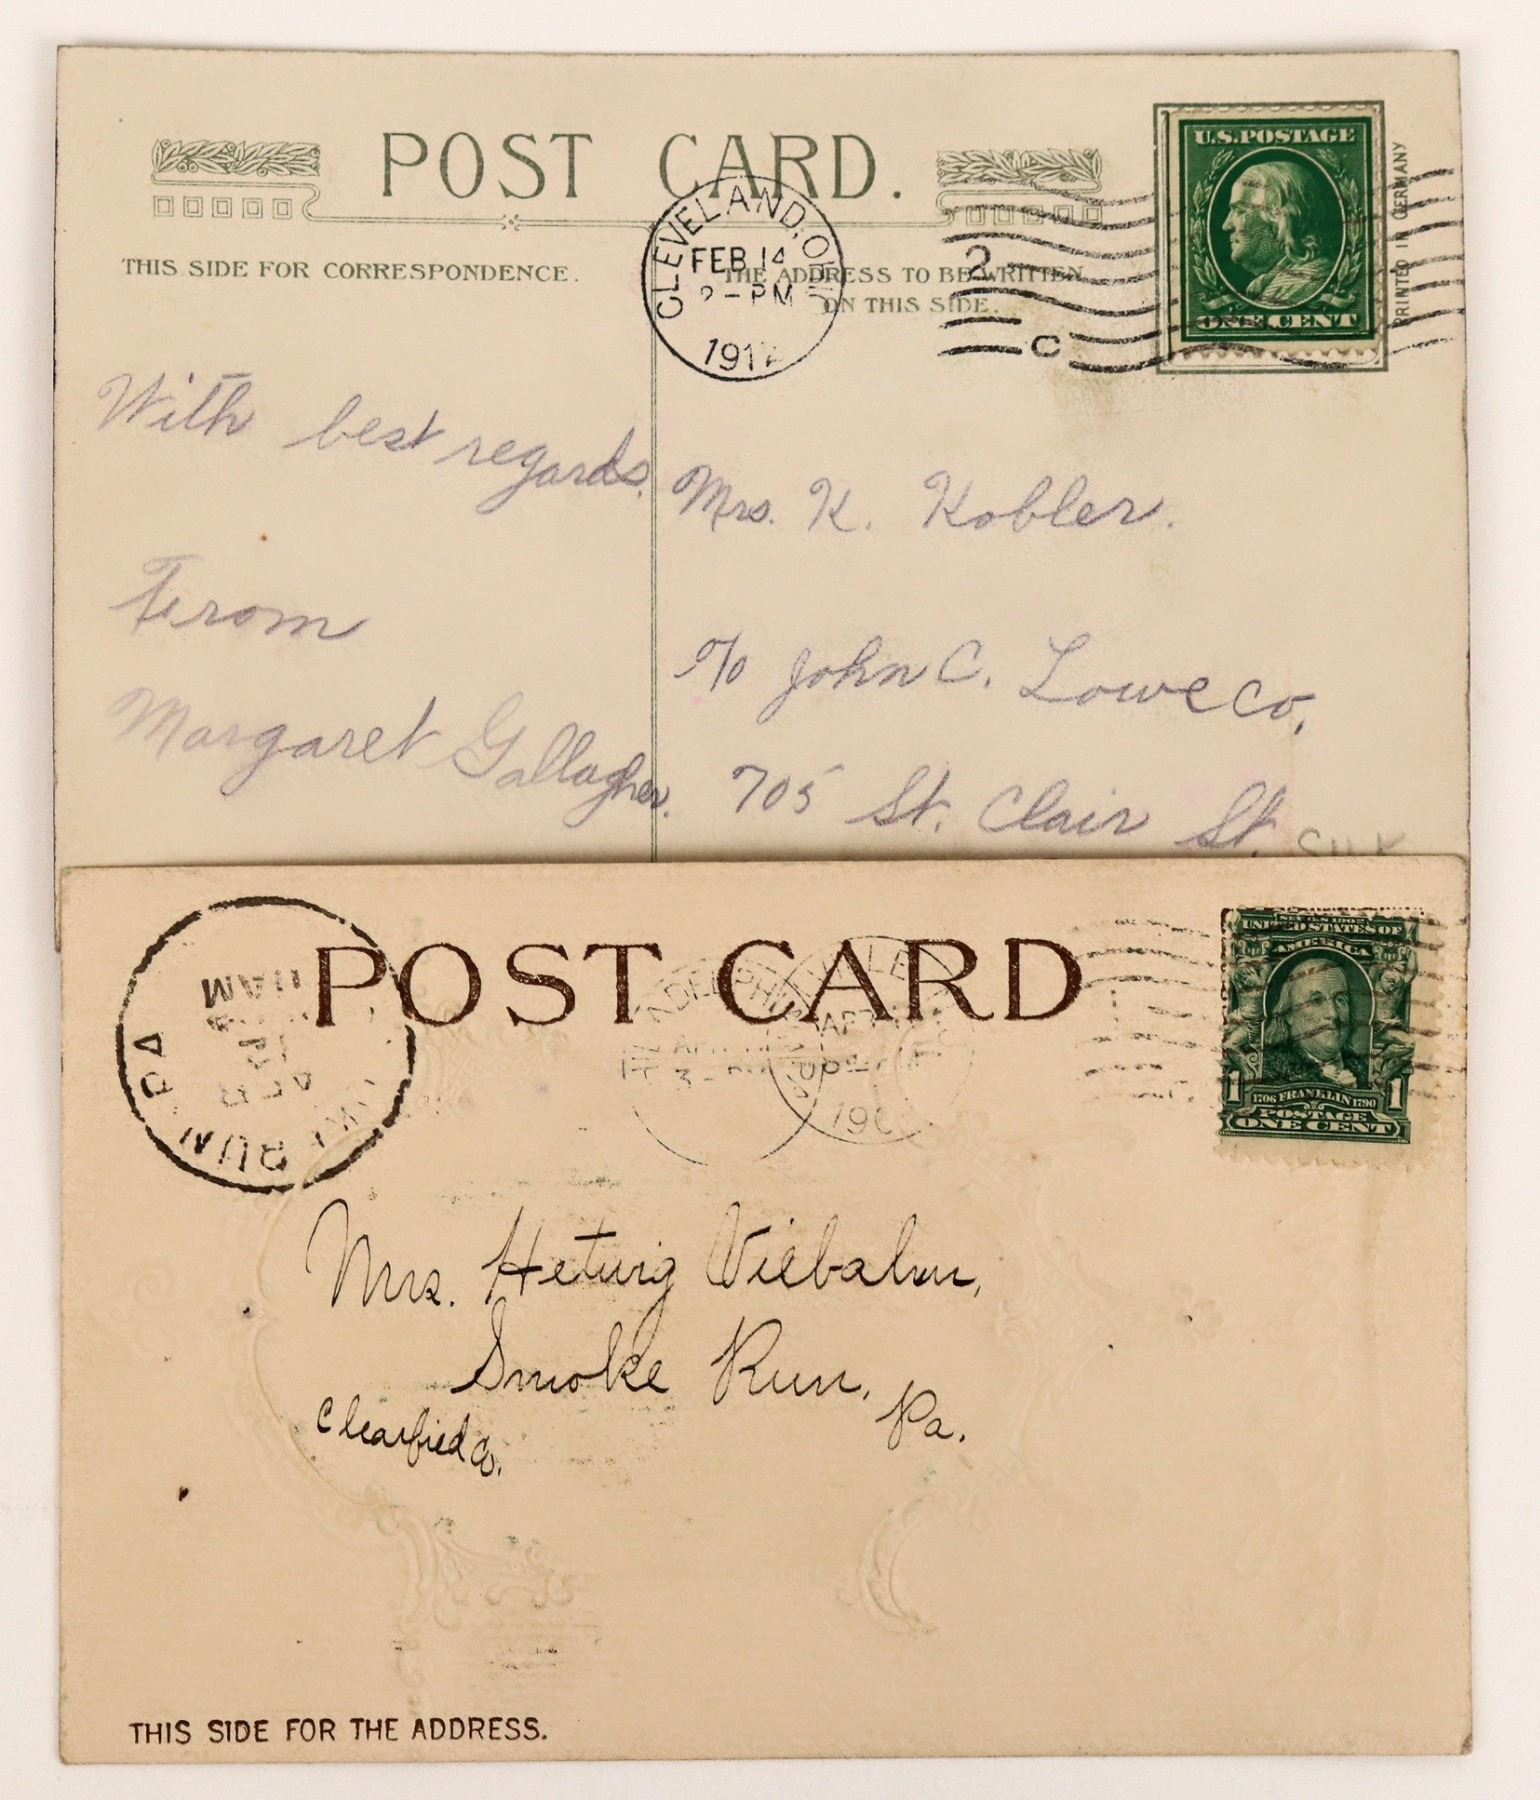 POST CARD.
U.S. POSTAGE
ONE CENT
PRINTED IN GERMANY
THIS SIDE FOR CORRESPONDENCE.
THE ADDRESS TO BE WRITTEN
ON THIS SIDE.
CLEVELAND, O
FEB 14
2-PM
191
2
C
With best regards.
From
Margaret Gallagher.
Mrs. K. Kobler.
c/o John C. Lowe Co.
705 St. Clair St.
POST CARD
SERIES 1902
UNITED STATES OF
AMERICA
1706 FRANKLIN 1790
1 POSTAGE 1
ONE CENT
RUN PA
11 AM
190
Mrs. Hetwig Viebahn,
Smoke Run,
Pa.
Clearfield Co.
THIS SIDE FOR THE ADDRESS.